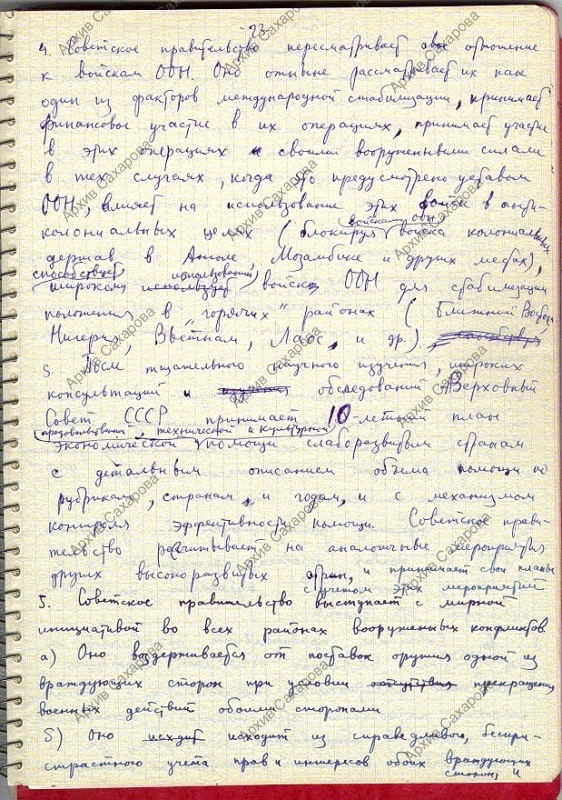 23
4. Советское правительство пересматривает свое отношение
к войскам ООН. Оно отныне рассматривает их как
один из факторов международной стабилизации, принимает
финансовое участие в их операциях, принимает участие
в этих операциях своими вооруженными силами
в тех случаях, когда это предусмотрено уставом
ООН, влияет на использование этих войск в анти-
колониальных целях (блокируя войсками ООН войска колониальных
держав в Анголе, Мозамбике и других местах),
способствует
широкому использованию войск ООН для стабилизации
положения в "горячих" районах (Ближний Восток,
Нигерия, Вьетнам, Лаос, и др.)
5. После тщательного научного изучения, широких
консультаций и обследований Верховный
Совет СССР принимает 10-летний план
продовольственной, технической и культурной
экономической помощи слаборазвитым странам
с детальным описанием объема помощи по
рубрикам, странам, и годам, и с механизмом
контроля эффективности помощи. Советское прави-
тельство рассчитывает на аналогичные мероприятия
других высокоразвитых стран, и принимает свои планы
с учетом этих мероприятий
5. Советское правительство выступает с мирной
инициативой во всех районах вооруженных конфликтов.
а) Оно воздерживается от поставок оружия одной из
враждующих сторон при условии прекращения
военных действий обоими сторонами
б) Оно исходит из справедливого, беспри-
страстного учета прав и интересов обоих враждующих
сторон, и
Архив Сахарова